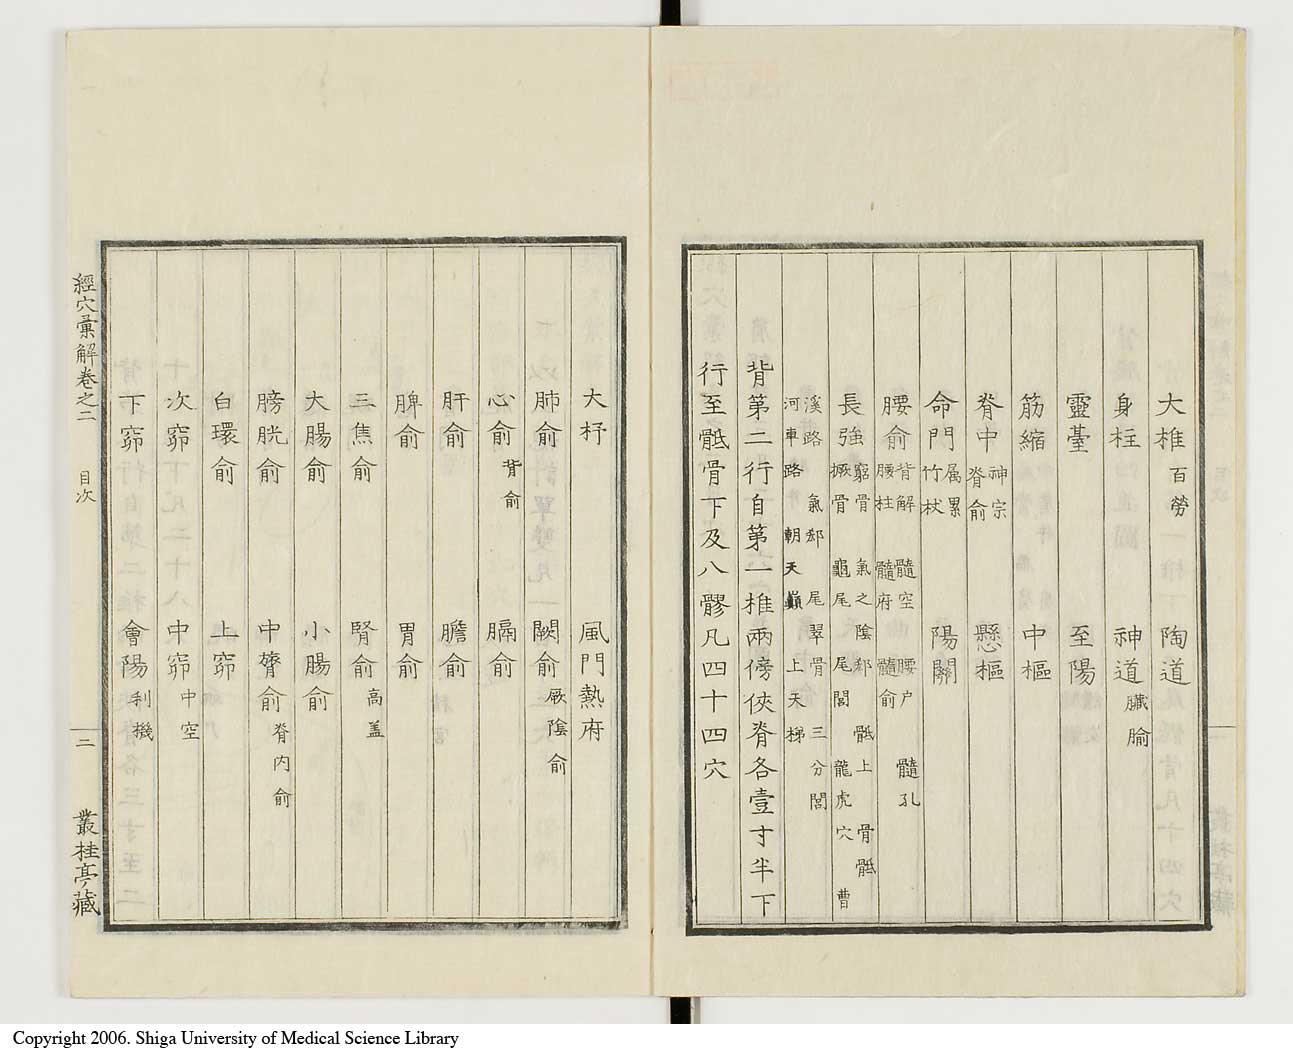 大椎 百勞 陶道
身柱 神道 臟腧
靈臺 至陽
筋縮 中樞
脊中 神宗 脊俞 懸樞
命門 属累 竹杖 陽關
腰俞 背解 髓空 腰户 髓孔 腰柱 髓府 髓俞
長強 窮骨 氣之陰郄 骶上 骨骶 撅骨 龜尾 尾閭 龍虎穴 曹
溪路 氣郄 尾翠骨 三分閭 河車路 朝天巔 上天梯
背第二行自第一椎兩傍俠脊各壹寸半下
行至骶骨下及八髎凡四十四穴
大杼 風門熱府
肺俞 闕俞 厥陰俞
心俞 背俞 膈俞
肝俞 膽俞
脾俞 胃俞
三焦俞 腎俞 高盖
大腸俞 小腸俞
膀胱俞 中膂俞 脊内俞
白環俞 上窌
次窌 中窌 中空
下窌 會陽 利機
經穴彙解卷之二 目次 二 叢桂亭藏
Copyright 2006. Shiga University of Medical Science Library